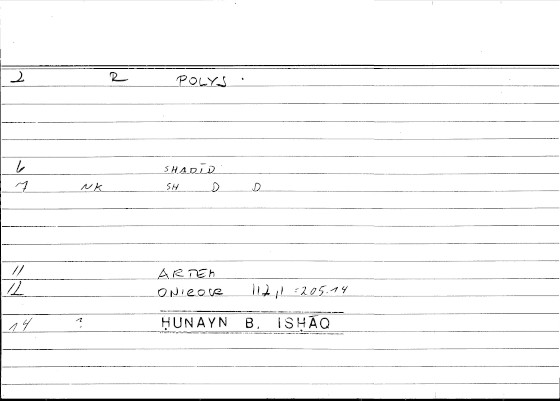 2 2 POLYS.
6 SHADĪD
7 NK SH D D
11 ARTEM
12 ONIROCR 112,1 = 205.14
14 ? ḤUNAYN B. ISḤĀQ